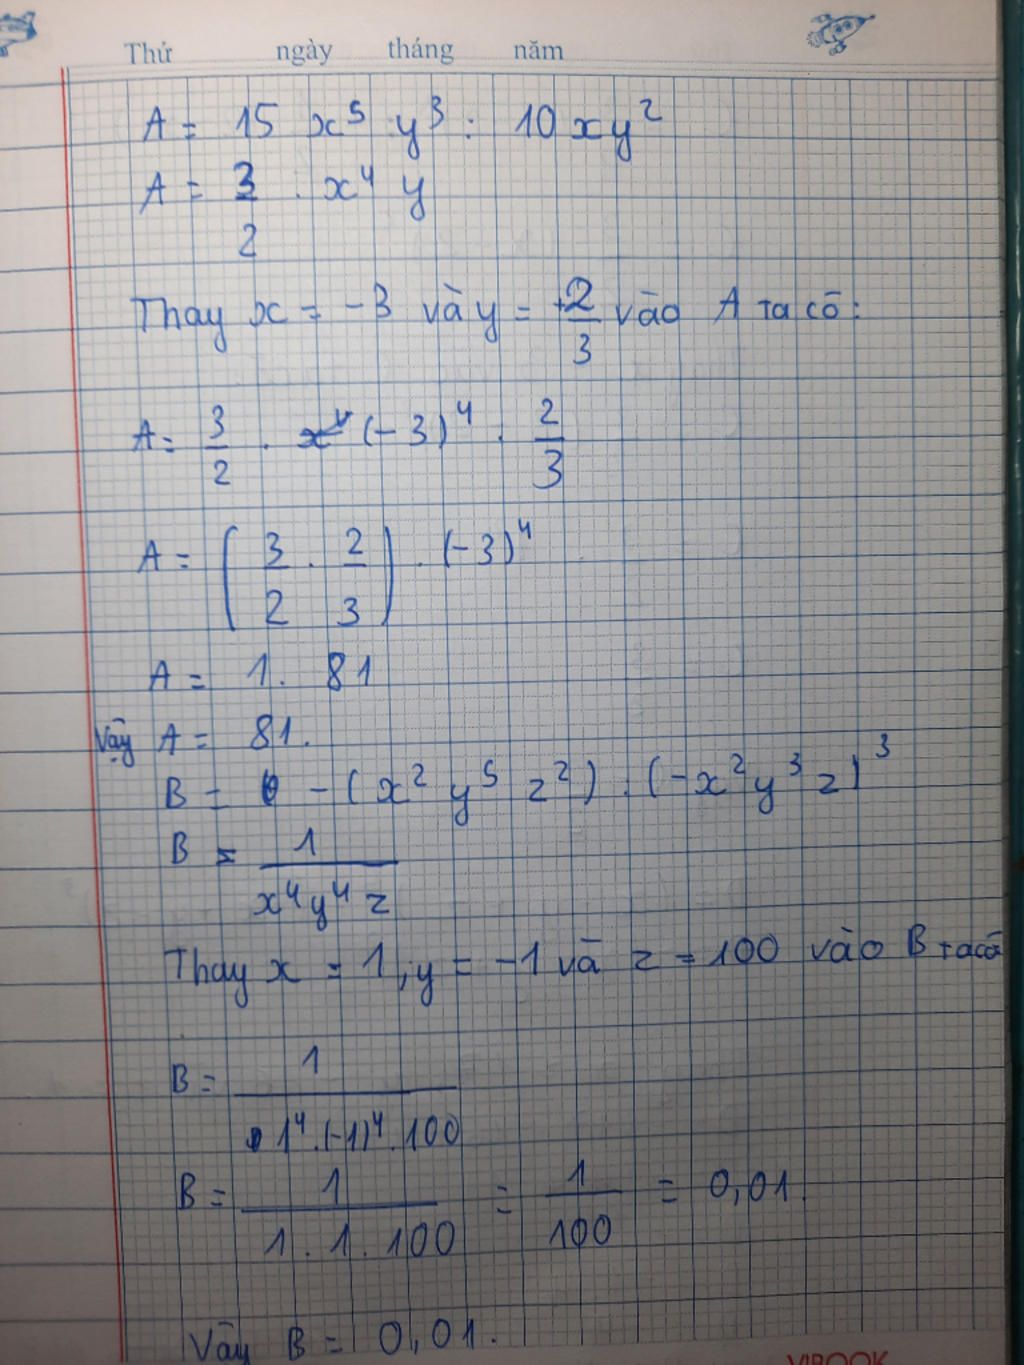 Thứ ngày tháng năm
A = 15 x⁵ y³ : 10 x y²
A = 3/2 . x⁴ y
Thay x = -3 và y = 2/3 vào A ta có:
A = 3/2 . (-3)⁴ . 2/3
A = (3/2 . 2/3) . (-3)⁴
A = 1 . 81
Vậy A = 81.
B = - (x² y⁵ z²) : (-x² y³ z)³
B = 1/(x⁴ y⁴ z)
Thay x = 1, y = -1 và z = 100 vào B ta có
B = 1/(1⁴ . (-1)⁴ . 100)
B = 1/(1 . 1 . 100) = 1/100 = 0,01.
Vậy B = 0,01.
VIBOOK